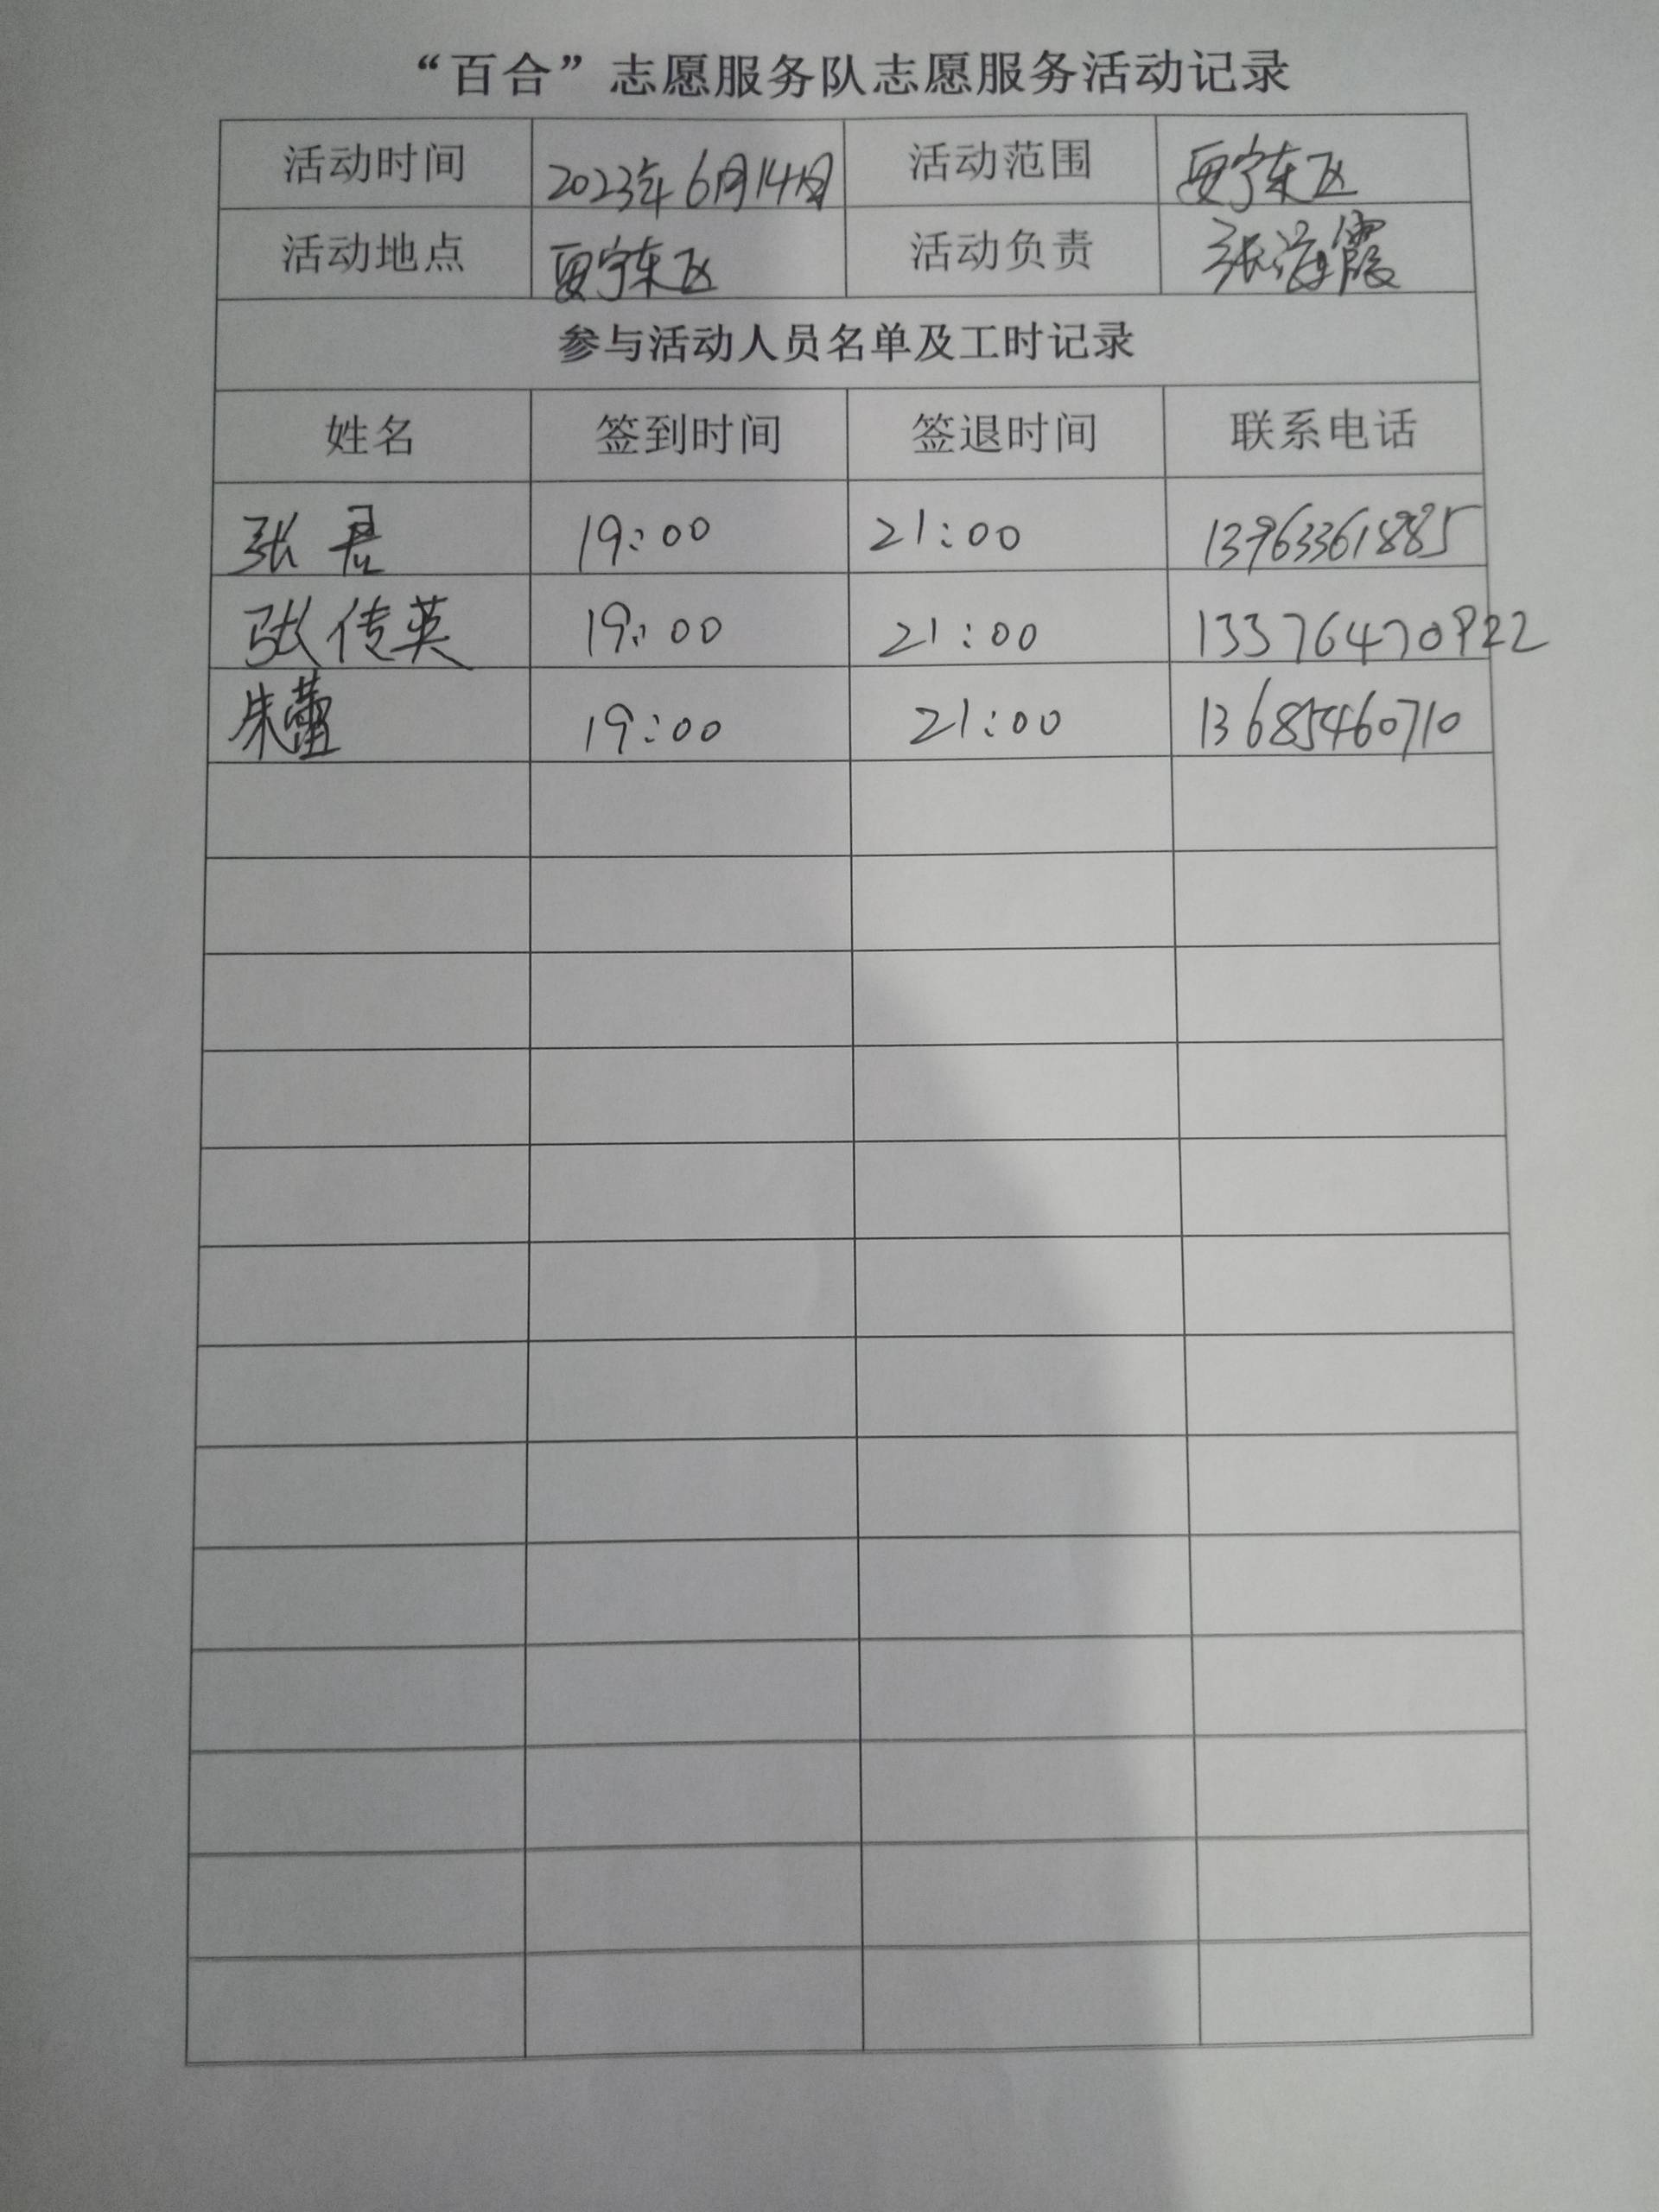 “百合”志愿服务队志愿服务活动记录
活动时间 2023年6月14日 活动范围 东区
活动地点 东区 活动负责 张海霞
参与活动人员名单及工时记录
姓名 签到时间 签退时间 联系电话
张君 19:00 21:00 13963361885
张传英 19:00 21:00 13376470922
朱蕾 19:00 21:00 13685460710